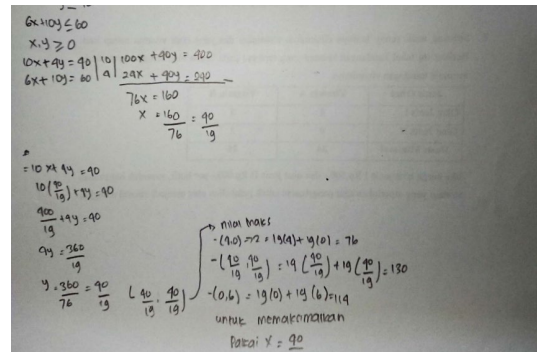 6x+10y ≤ 60
x,y ≥ 0
10x+4y = 40 | 10 | 100x + 40y = 400
6x+10y = 60 | 4 | 24x + 40y = 240
76x = 160
x = 160/76 = 40/19
= 10x + 4y = 40
10(40/19) + 4y = 40
400/19 + 4y = 40
4y = 360/19
y = 360/76 = 90/19
(40/19, 90/19)
→ nilai maks
- (4,0) → z = 19(4) + 19(0) = 76
- (40/19, 90/19) = 19(40/19) + 19(90/19) = 130
- (0,6) = 19(0) + 19(6) = 114
untuk memaksimalkan
Pakai x = 40